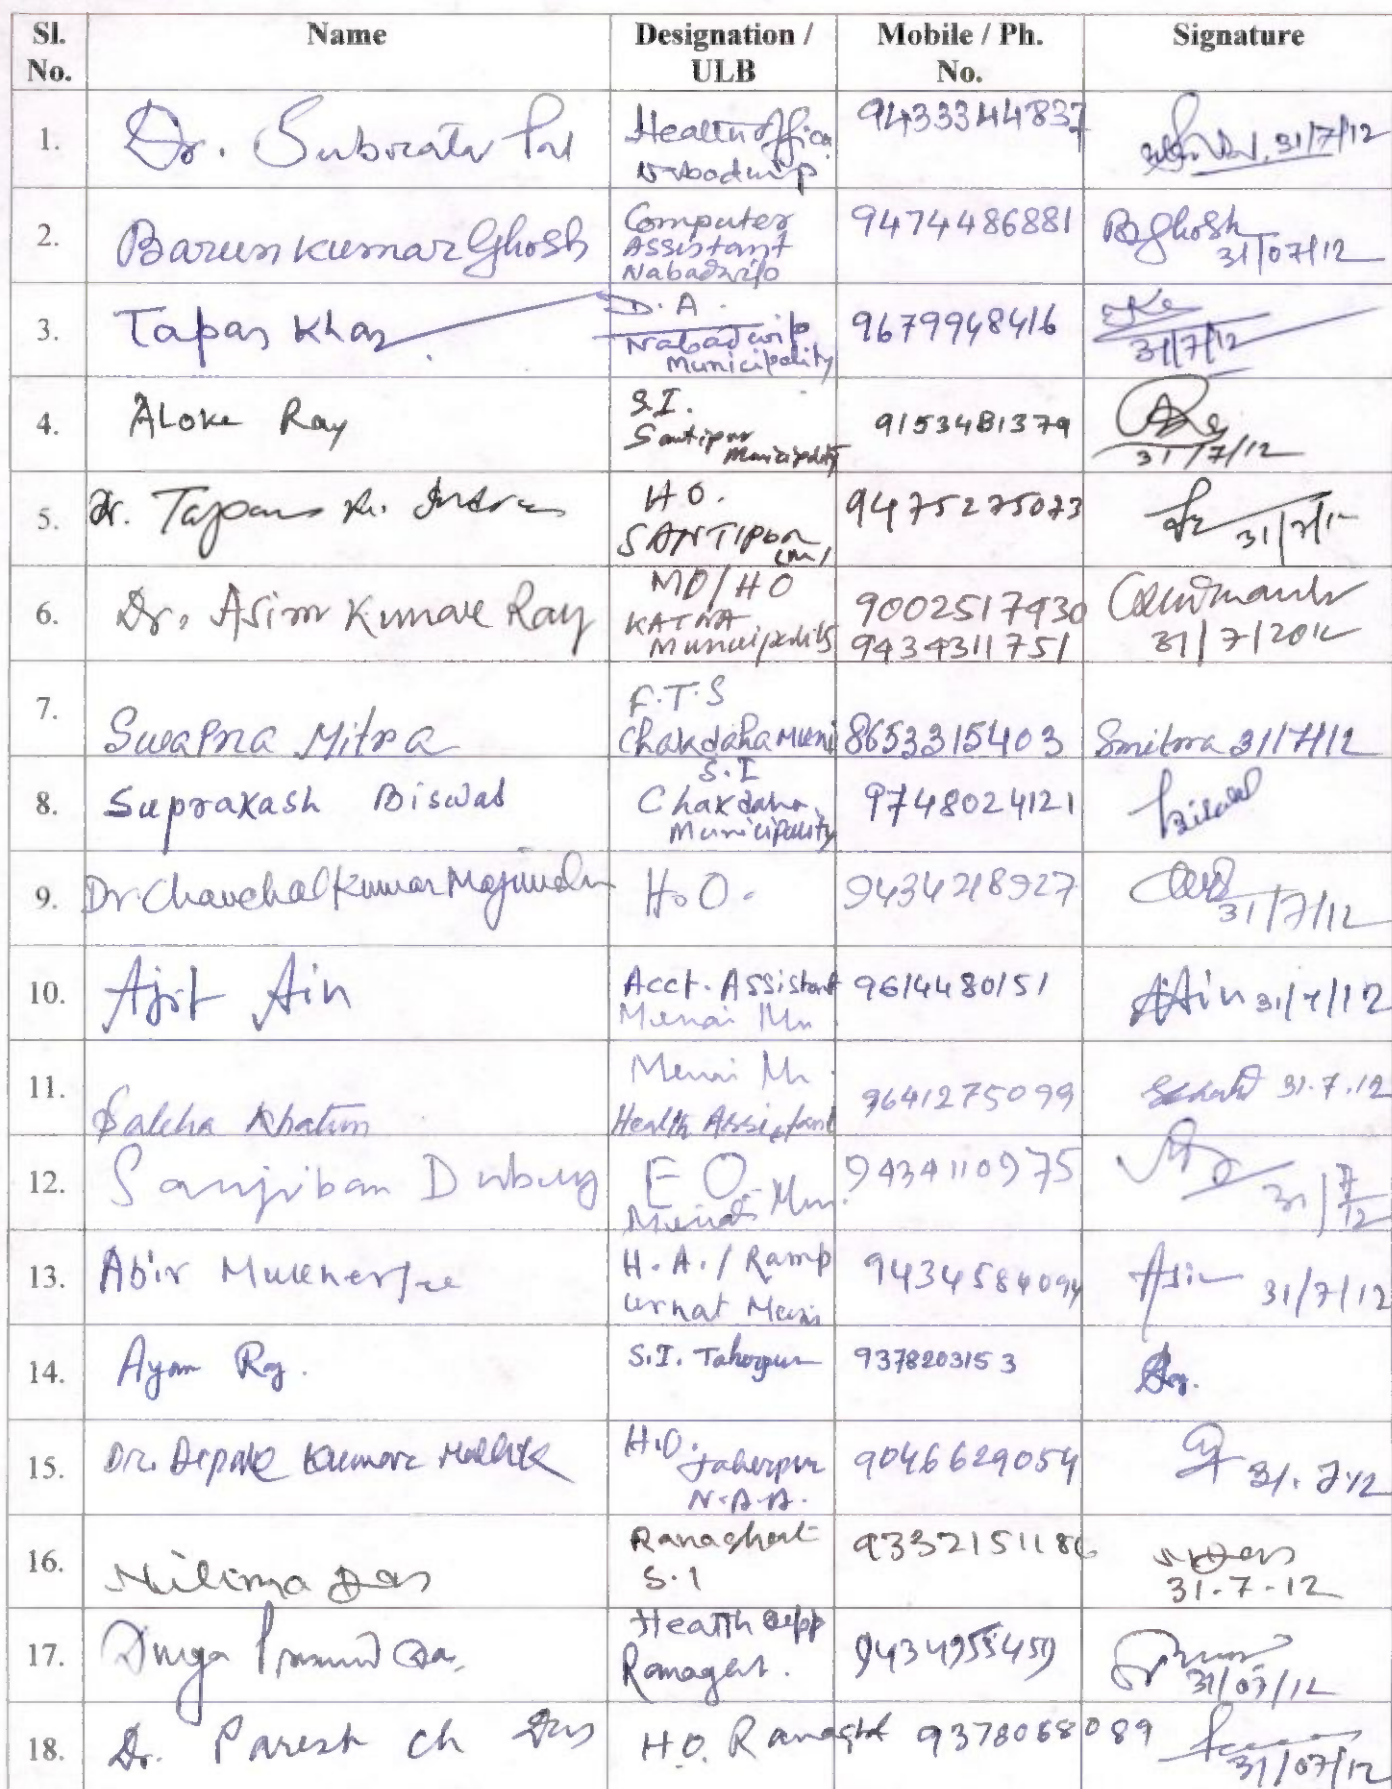 Sl. No. Name Designation / ULB Mobile / Ph. No. Signature
1. Dr. Subrata Pal Health Officer Nabadwip 9433344837 31/7/12
2. Barun Kumar Ghosh Computer Assistant Nabadwip 9474486881 BGhosh 31/07/12
3. Tapas Khan D.A. Nabadwip Municipality 9679948416 31/7/12
4. Aloke Ray S.I. Santipur Municipality 9153481379 31/7/12
5. Dr. Tapan Kr. Indra H O. SANTIPUR (M) 9475275073 31/7/12
6. Dr. Asim Kumar Ray MO/HO KATWA Municipality 9002517930 9434311751 31/7/2012
7. Swapna Mitra F.T.S Chakdaha Muni 8653315403 Smitra 31/7/12
8. Suprakash Biswas S.I Chakdaha Municipality 9748024121 Biswas
9. Dr. Chanchal Kumar Majumdar H.O. 9434218927 31/7/12
10. Ajit Ain Acct. Assistant Memari Mn 9614480151 AAin 31/7/12
11. Saleha Khatun Memari Mn. Health Assistant 9641275099 31.7.12
12. Sanjiban Dubey E O. Memari Mun. 9434110975 31/7/12
13. Abir Mukherjee H.A. / Ramp urhat Muni 9434584094 Abir 31/7/12
14. Ayan Roy. S.I. Taherpur 9378203153
15. Dr. Dipak Kumar Mallik H.O. Taherpur N.A.A. 9046629054 31.7.12
16. Nilima Das Ranaghat S.I 9332151186 NDas 31-7-12
17. Durga Prasad Das. Health Supp Ranaghat. 9434955459 31/07/12
18. Dr. Paresh Ch Das H.O. Ranaghat 9378068089 31/07/12